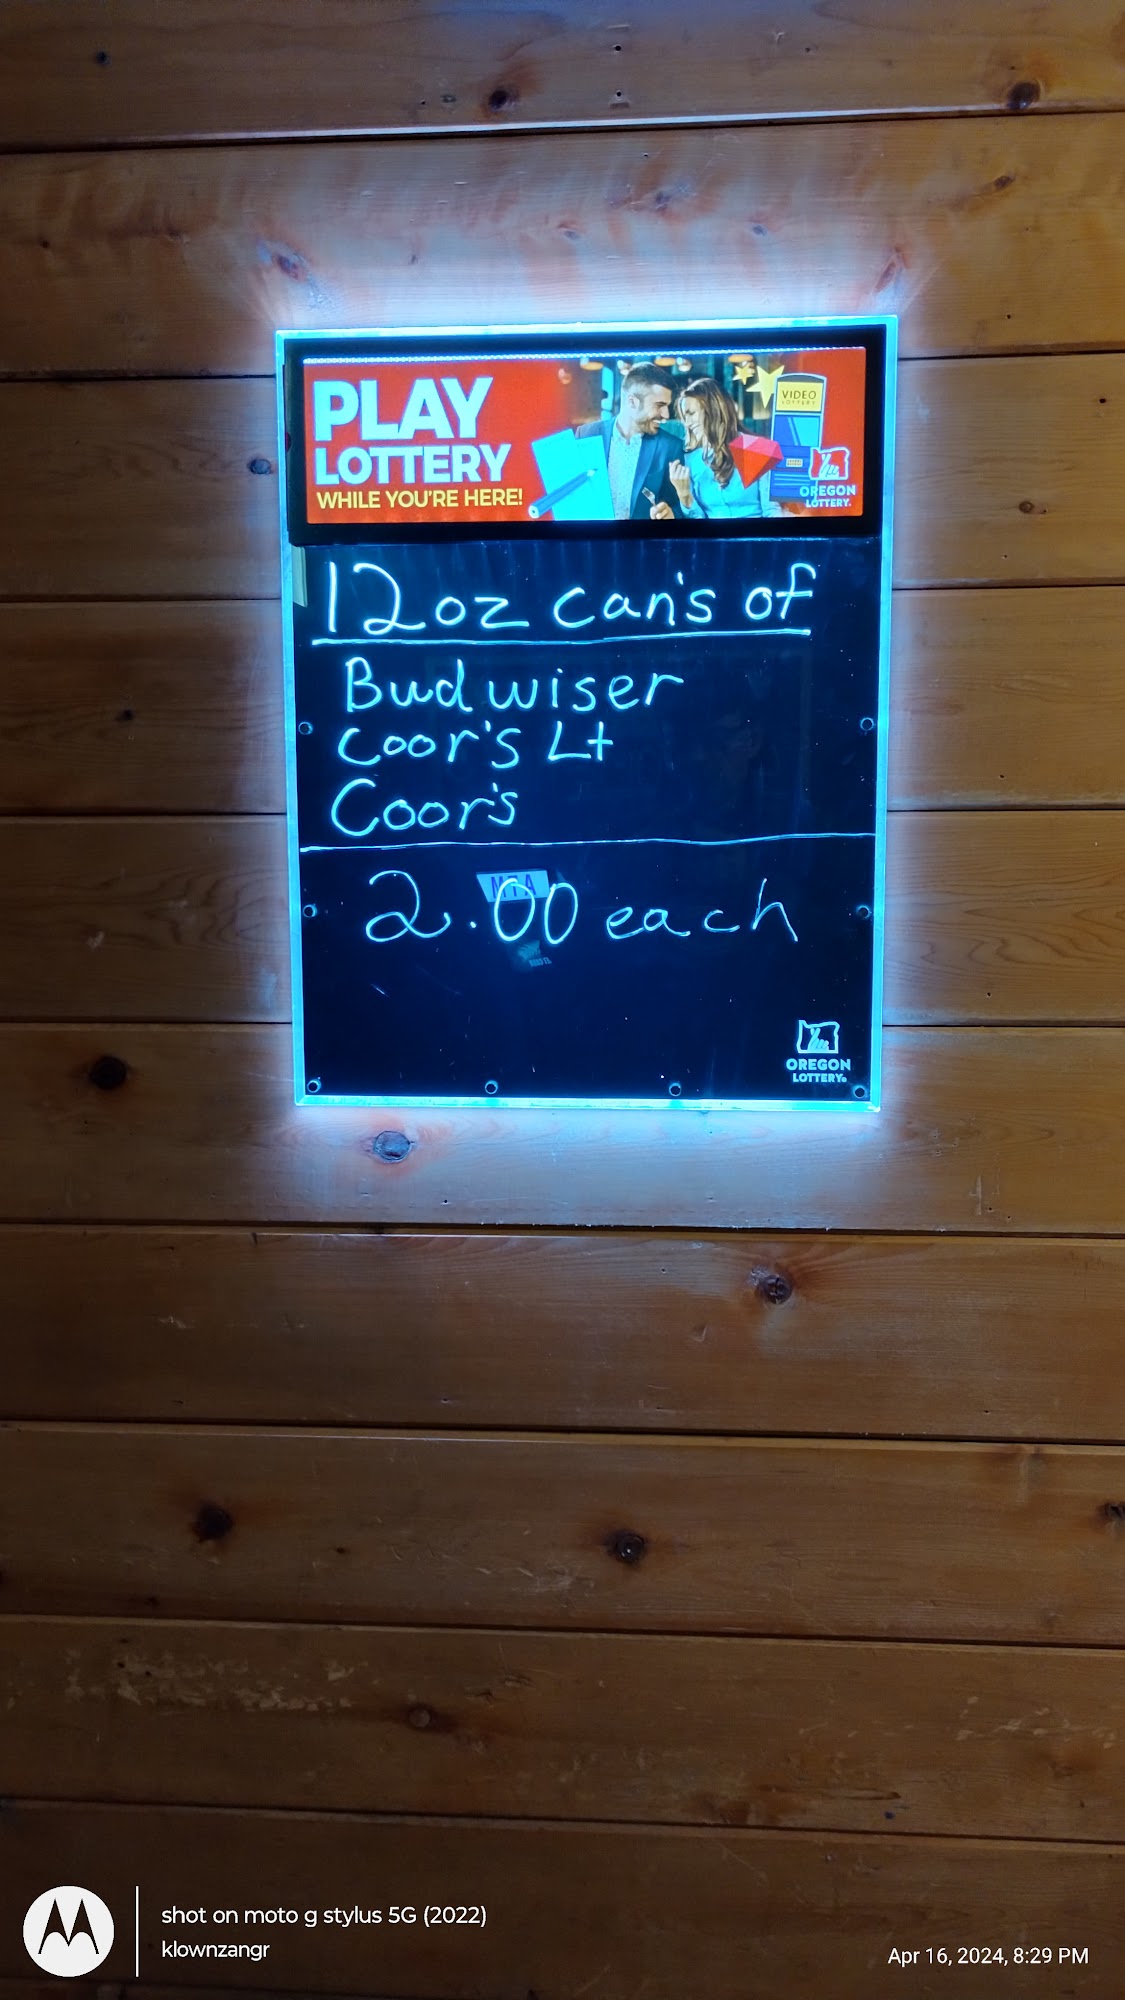 PLAY
LOTTERY
WHILE YOU'RE HERE!
VIDEO
LOTTERY
OREGON
LOTTERY.
12oz can's of
Budwiser
Coor's Lt
Coor's
2.00 each
OREGON
LOTTERY®
shot on moto g stylus 5G (2022)
klownzangr
Apr 16, 2024, 8:29 PM